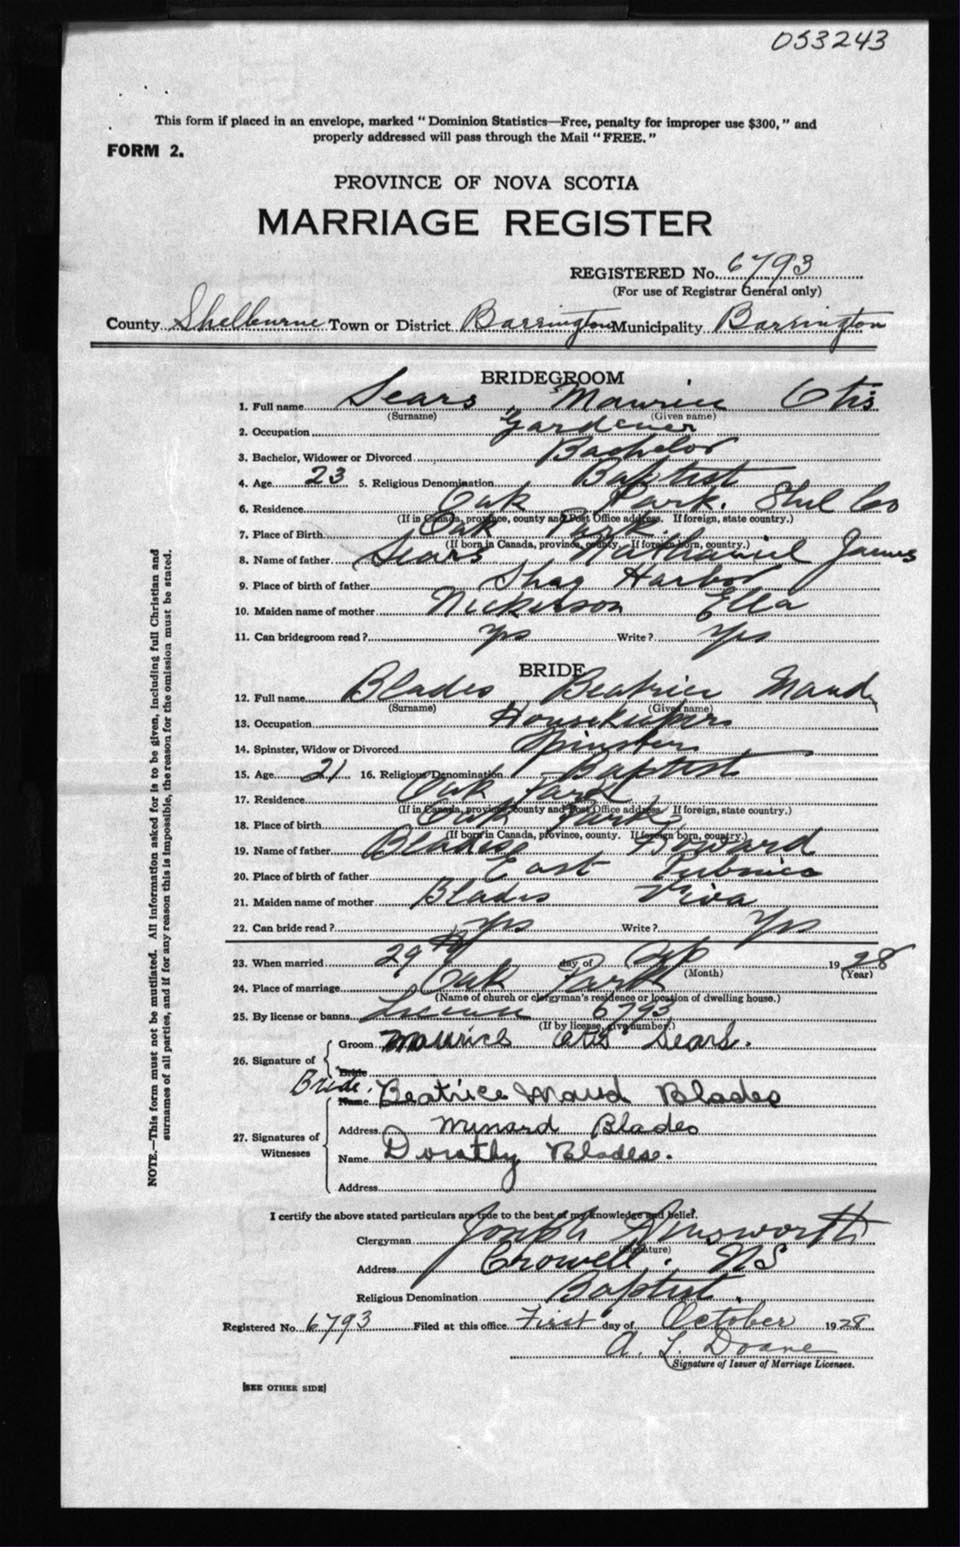 053243
This form if placed in an envelope, marked "Dominion Statistics—Free, penalty for improper use $300," and
properly addressed will pass through the Mail "FREE."
FORM 2.
PROVINCE OF NOVA SCOTIA
MARRIAGE REGISTER
REGISTERED No. 6793
(For use of Registrar General only)
County Shelburne Town or District Barrington Municipality Barrington
BRIDEGROOM
1. Full name Sears, Maurice Otis
(Surname) (Given name)
2. Occupation Gardener
3. Bachelor, Widower or Divorced Bachelor
4. Age 23 5. Religious Denomination Baptist
6. Residence Oak Park. Shel Co
(If in Canada, province, county and Post Office address. If foreign, state country.)
7. Place of Birth Oak Park
(If born in Canada, province, county. If foreign born, country.)
8. Name of father Sears Nathaniel James
9. Place of birth of father Shag Harbor
10. Maiden name of mother Nickerson Ella
11. Can bridegroom read? yes Write? yes
BRIDE
12. Full name Blades Beatrice Maud
(Surname) (Given name)
13. Occupation Housekeepers
14. Spinster, Widow or Divorced Spinster
15. Age 21 16. Religious Denomination Baptist
17. Residence Oak Park
(If in Canada, province, county and Post Office address. If foreign, state country.)
18. Place of birth Oak Park
(If born in Canada, province, county. If foreign born, country.)
19. Name of father Blades Howard
20. Place of birth of father East Pubnico
21. Maiden name of mother Blades Viva
22. Can bride read? Yes Write? Yes
23. When married 29th day of Sep 1928
(Month) (Year)
24. Place of marriage Oak Park
(Name of church or clergyman's residence or location of dwelling house.)
25. By license or banns License 6793
(If by license, give number.)
26. Signature of Groom Maurice Otis Sears.
Bride
Bride. Name Beatrice Maud Blades
27. Signatures of Witnesses
Address Minard Blades
Name Dorothy Blades.
Address
I certify the above stated particulars are true to the best of my knowledge and belief.
Clergyman Joseph Ainsworth
(Signature)
Address Crowell. NS
Religious Denomination Baptist.
Registered No. 6793 Filed at this office First day of October 1928
A. L. Doane
Signature of Issuer of Marriage Licenses.
[SEE OTHER SIDE]
NOTE.—This form must not be mutilated. All information asked for is to be given, including full Christian and
surnames of all parties, and if for any reason this is impossible, the reason for the omission must be stated.